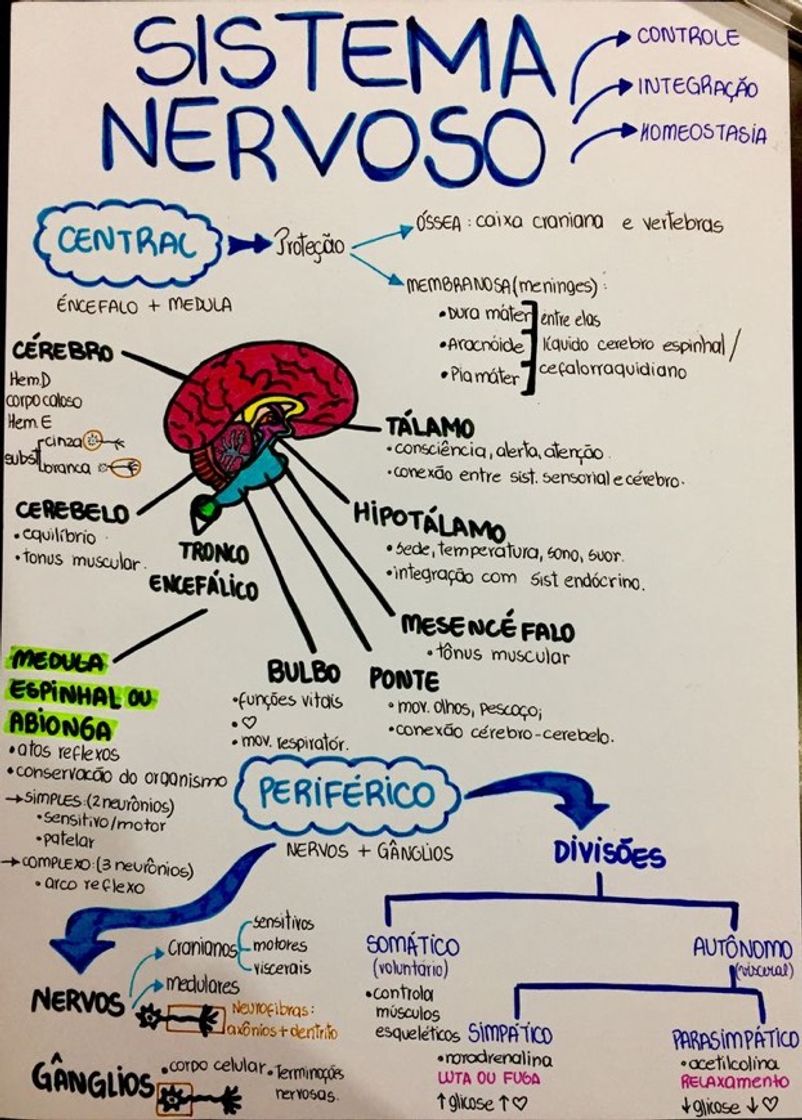 SISTEMA
NERVOSO
CONTROLE
INTEGRAÇÃO
HOMEOSTASIA
CENTRAL
Proteção
ÓSSEA: caixa craniana e vertebras
ÉNCEFALO + MEDULA
MEMBRANOSA (meninges):
•Dura máter
•Aracnóide
•Pia máter
entre elas
líquido cerebro espinhal/
cefalorraquidiano
CÉREBRO
Hem.D
corpo caloso
Hem.E
subst
cinza
branca
TÁLAMO
•consciência, alerta, atenção.
•conexão entre sist. sensorial e cérebro.
CEREBELO
•equilíbrio
•tonus muscular.
HIPOTÁLAMO
•sede, temperatura, sono, suor.
•integração com sist endócrino.
TRONCO
ENCEFÁLICO
MESENCÉFALO
•tônus muscular
MEDULA
ESPINHAL OU
ABIONGA
•atos reflexos
•conservação do organismo
→SIMPLES:(2 neurônios)
•sensitivo/motor
•patelar
→COMPLEXO:(3 neurônios)
•arco reflexo
BULBO
•funções vitais
•♡
•mov. respiratór.
PONTE
•mov. olhos, pescoço;
•conexão cérebro-cerebelo.
PERIFÉRICO
NERVOS + GÂNGLIOS
DIVISÕES
NERVOS
Cranianos
sensitivos
motores
viscerais
medulares
Neurofibras:
axônios+dentrito
GÂNGLIOS
•corpo celular
•Terminações
nervosas.
SOMÁTICO
(voluntário)
•controla
músculos
esqueléticos
AUTÔNOMO
(visceral)
SIMPÁTICO
•noradrenalina
LUTA OU FUGA
↑glicose ↑♡
PARASIMPÁTICO
•acetilcolina
RELAXAMENTO
↓glicose ↓♡